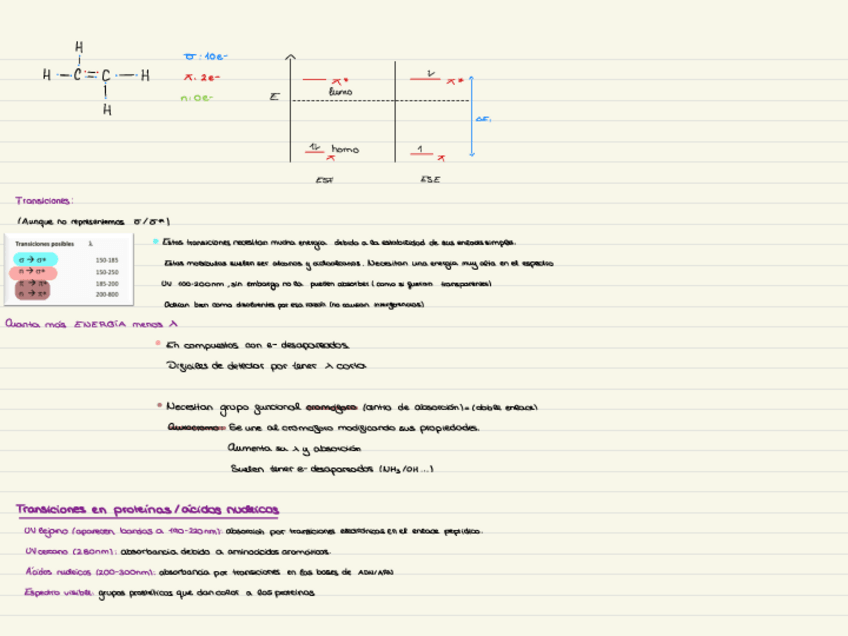 H
H — C = C — H
H
σ: 10e-
π: 2e-
n: 0e-
E
π*
lumo
homo
π
π*
π
ΔE
ESF
ESE
Transiciones:
(Aunque no representemos σ/σ*)
Transiciones posibles λ
σ → σ* 150-185
n → σ* 150-250
π → π* 185-200
n → π* 200-800
Estas transiciones necesitan mucha energía debido a la estabilidad de sus enlaces simples.
Estas moléculas suelen ser alcanos y cicloalcanos. Necesitan una energía muy alta en el espectro
UV 100-200nm, sin embargo no la pueden absorber (como si fueran transparentes)
Actúan bien como disolventes por esa razón (no causan interferencias)
Cuanta más ENERGÍA menos λ
En compuestos con e- desapareados
Difíciles de detectar por tener λ corta
Necesitan grupo funcional cromóforo (centro de absorción) = (doble enlace)
Auxocromo: Se une al cromóforo modificando sus propiedades.
Aumenta su λ y absorción
Suelen tener e- desapareados (NH₃/OH...)
Transiciones en proteínas/ácidos nucleicos
UV lejano (aparecen bandas a 190-220nm): absorción por transiciones electrónicas en el enlace peptídico.
UV cercano (280nm): absorbancia debido a aminoácidos aromáticos.
Ácidos nucleicos (200-300nm): absorbancia por transiciones en las bases de ADN/ARN
Espectro visible: grupos prostéticos que dan color a las proteínas